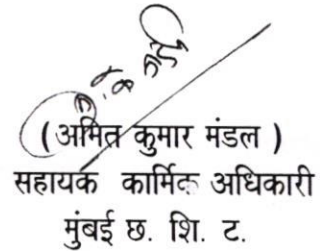 ( अमित कुमार मंडल )
सहायक कार्मिक अधिकारी
मुंबई छ. शि. ट.